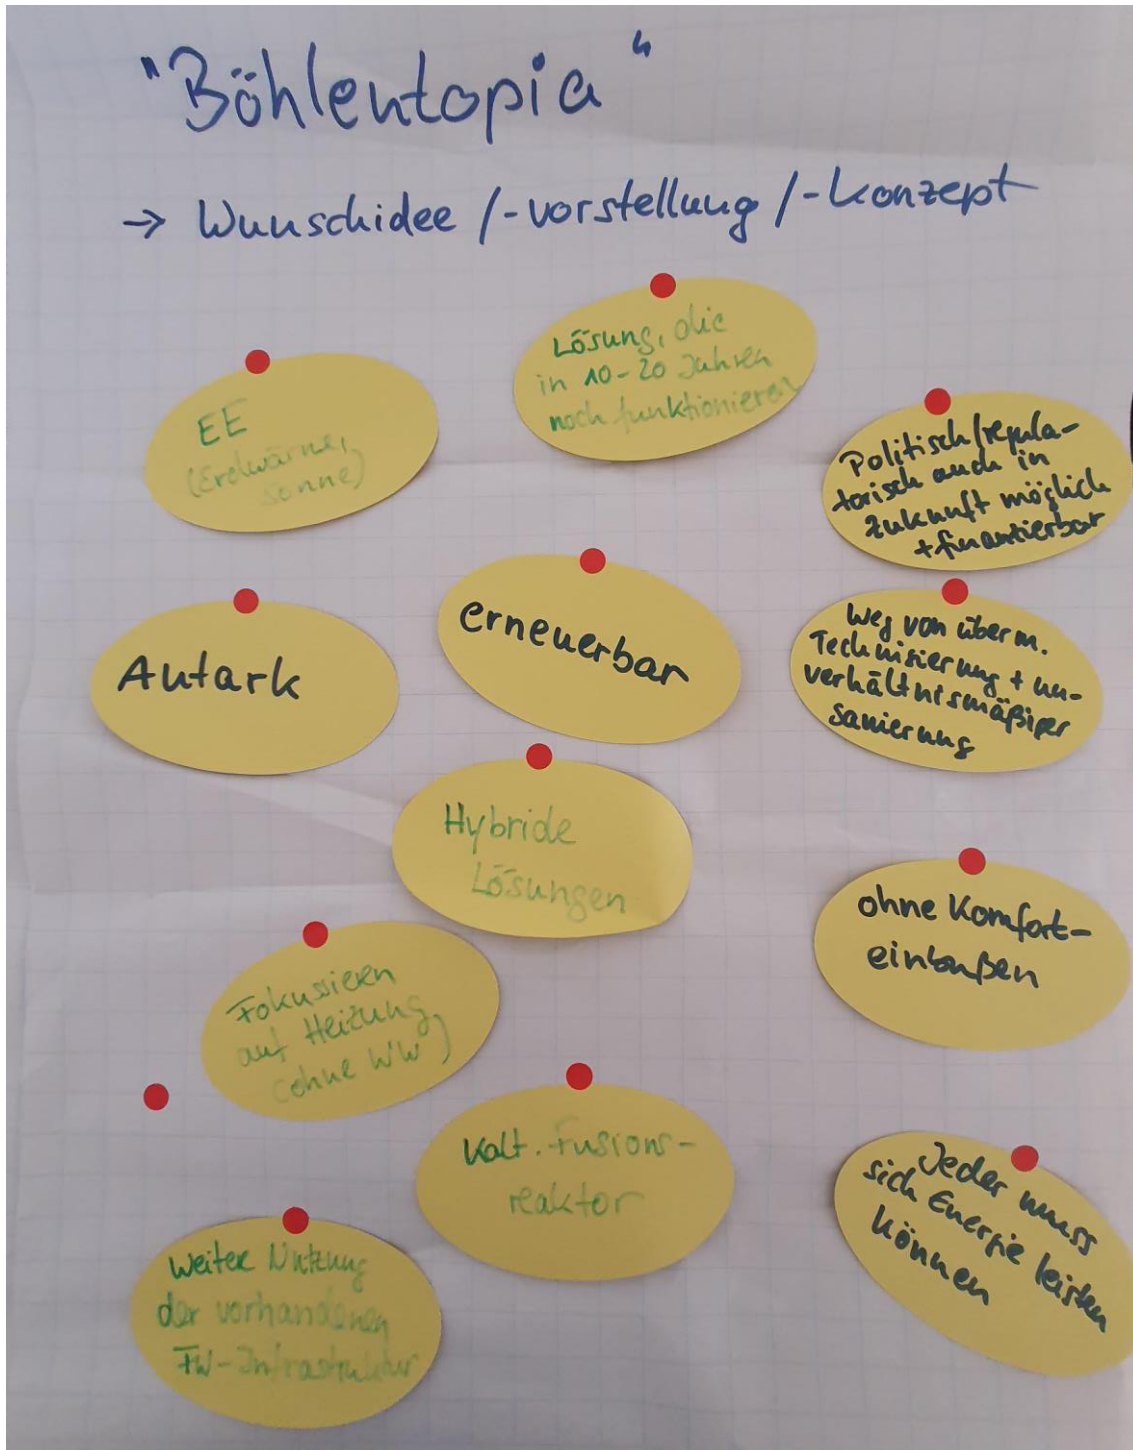 "Böhlentopia"
→ Wunschidee /-vorstellung /-konzept
Lösung, die
in 10-20 Jahren
noch funktionieren
EE
(Erdwärme,
Sonne)
Politisch/regula-
torisch auch in
Zukunft möglich
+ finanzierbar
Autark
erneuerbar
Weg von überm.
Technisierung + un-
verhältnismäßiger
Sanierung
Hybride
Lösungen
ohne Komfort-
einbußen
Fokussieren
auf Heizung
(ohne WW)
Kalt. Fusions-
reaktor
Jeder muss
sich Energie leisten
können
Weiter Nutzung
der vorhandenen
FW-Infrastruktur